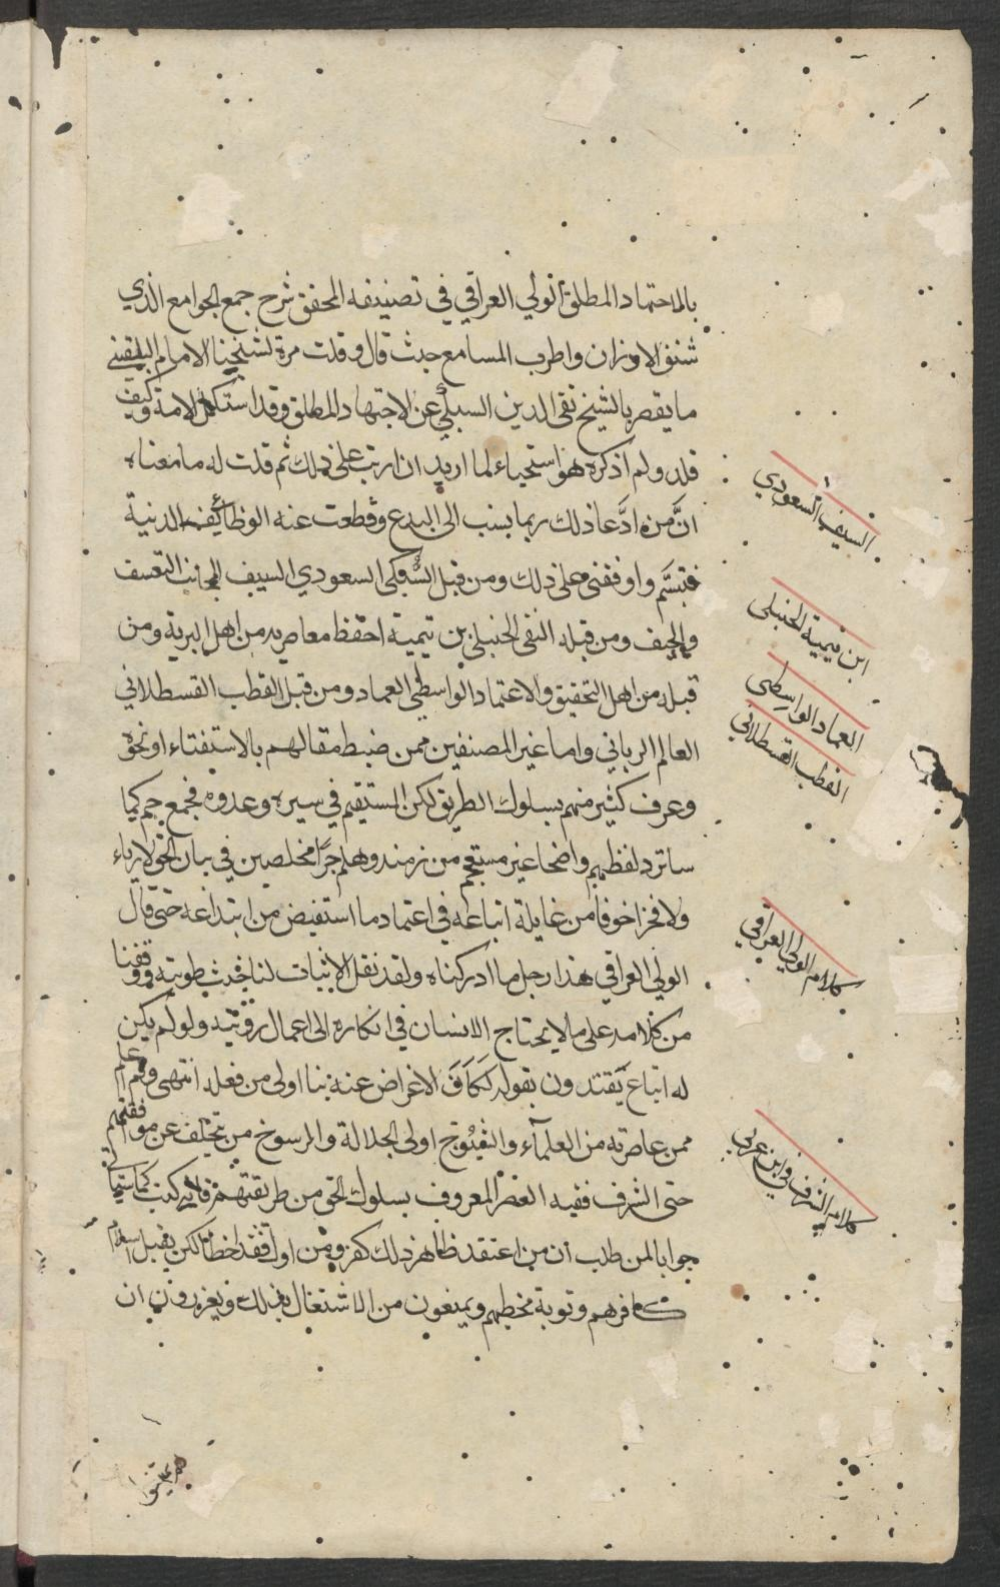 بالاجتهاد المطلق الولي العراقي في تصنيفه المحقق شرح جمع الجوامع الذي
شنف الاوزان واطرب المسامع حيث قال وقلت مرة لشيخنا الامام البلقيني
ما يقصر بالشيخ تقي الدين السبكي عن الاجتهاد المطلق وقد استكمل الامة وكيف
قلد ولم اذكره هو استحياء لما اريد ان ارتب على ذلك ثم قلت له ما معناه
ان من ادعا ذلك ربما ينسب الى البدع وقطعت عنه الوظائف الدنية
فتبسم واوفقني على ذلك ومن قبل السبكي السعودي السيف المجانب التعسف
والحيف ومن قبله التقي الحنبلي بن تيمية احفظ معاصريه من اهل البرية ومن
قبله من اهل التحقيق والاعتماد الواسطي العماد ومن قبل القطب القسطلاني
العالم الرباني واما غير المصنفين ممن ضبط مقالهم بالاستفتاء او نحوه
وعرف كثير منهم بسلوك الطريق لكن المستقيم في سيره وعدوه فجمع جم كما
ساترد لفظهم واضحا غير مستعجم من زمنه وهلم جرا مخلصين في بيان الحق لا رياء
ولا فخرا خوفا من غايلة اتباعه في اعتماد ما استفيض من ابتداعه حتى قال
الولي العراقي هذا رجل ما ادركناه ولقد نقل الاثبات لنا خبث طويته ووقفنا
من كلامه على ما لا يحتاج الانسان في انكاره الى اعمال رويته ولو لم يكن
له اتباع يقتدون بقوله لكان الاعراض عنه بنا اولى من فعله انتهى ولم اعلم
ممن عاصرته من العلماء والشيوخ اولي الجلالة والرسوخ من تخلف عن موافقتهم
حتى الشرف فقيه العصر المعروف بسلوك الحق من طريقتهم فانه كتب كما سياتي
جوابا لمن طلب ان من اعتقد ظاهر ذلك كفر ومن اول فقد اخطا لكن يقبل اسلام
كافرهم وتوبة مخطيهم ويمنعون من الاشتغال بذلك ويعزرون ان
السيف السعودي
ابن تيمية الحنبلي
العماد الواسطي
القطب القسطلاني
كلام الولي العراقي
كلام الشرف في ابن عربي